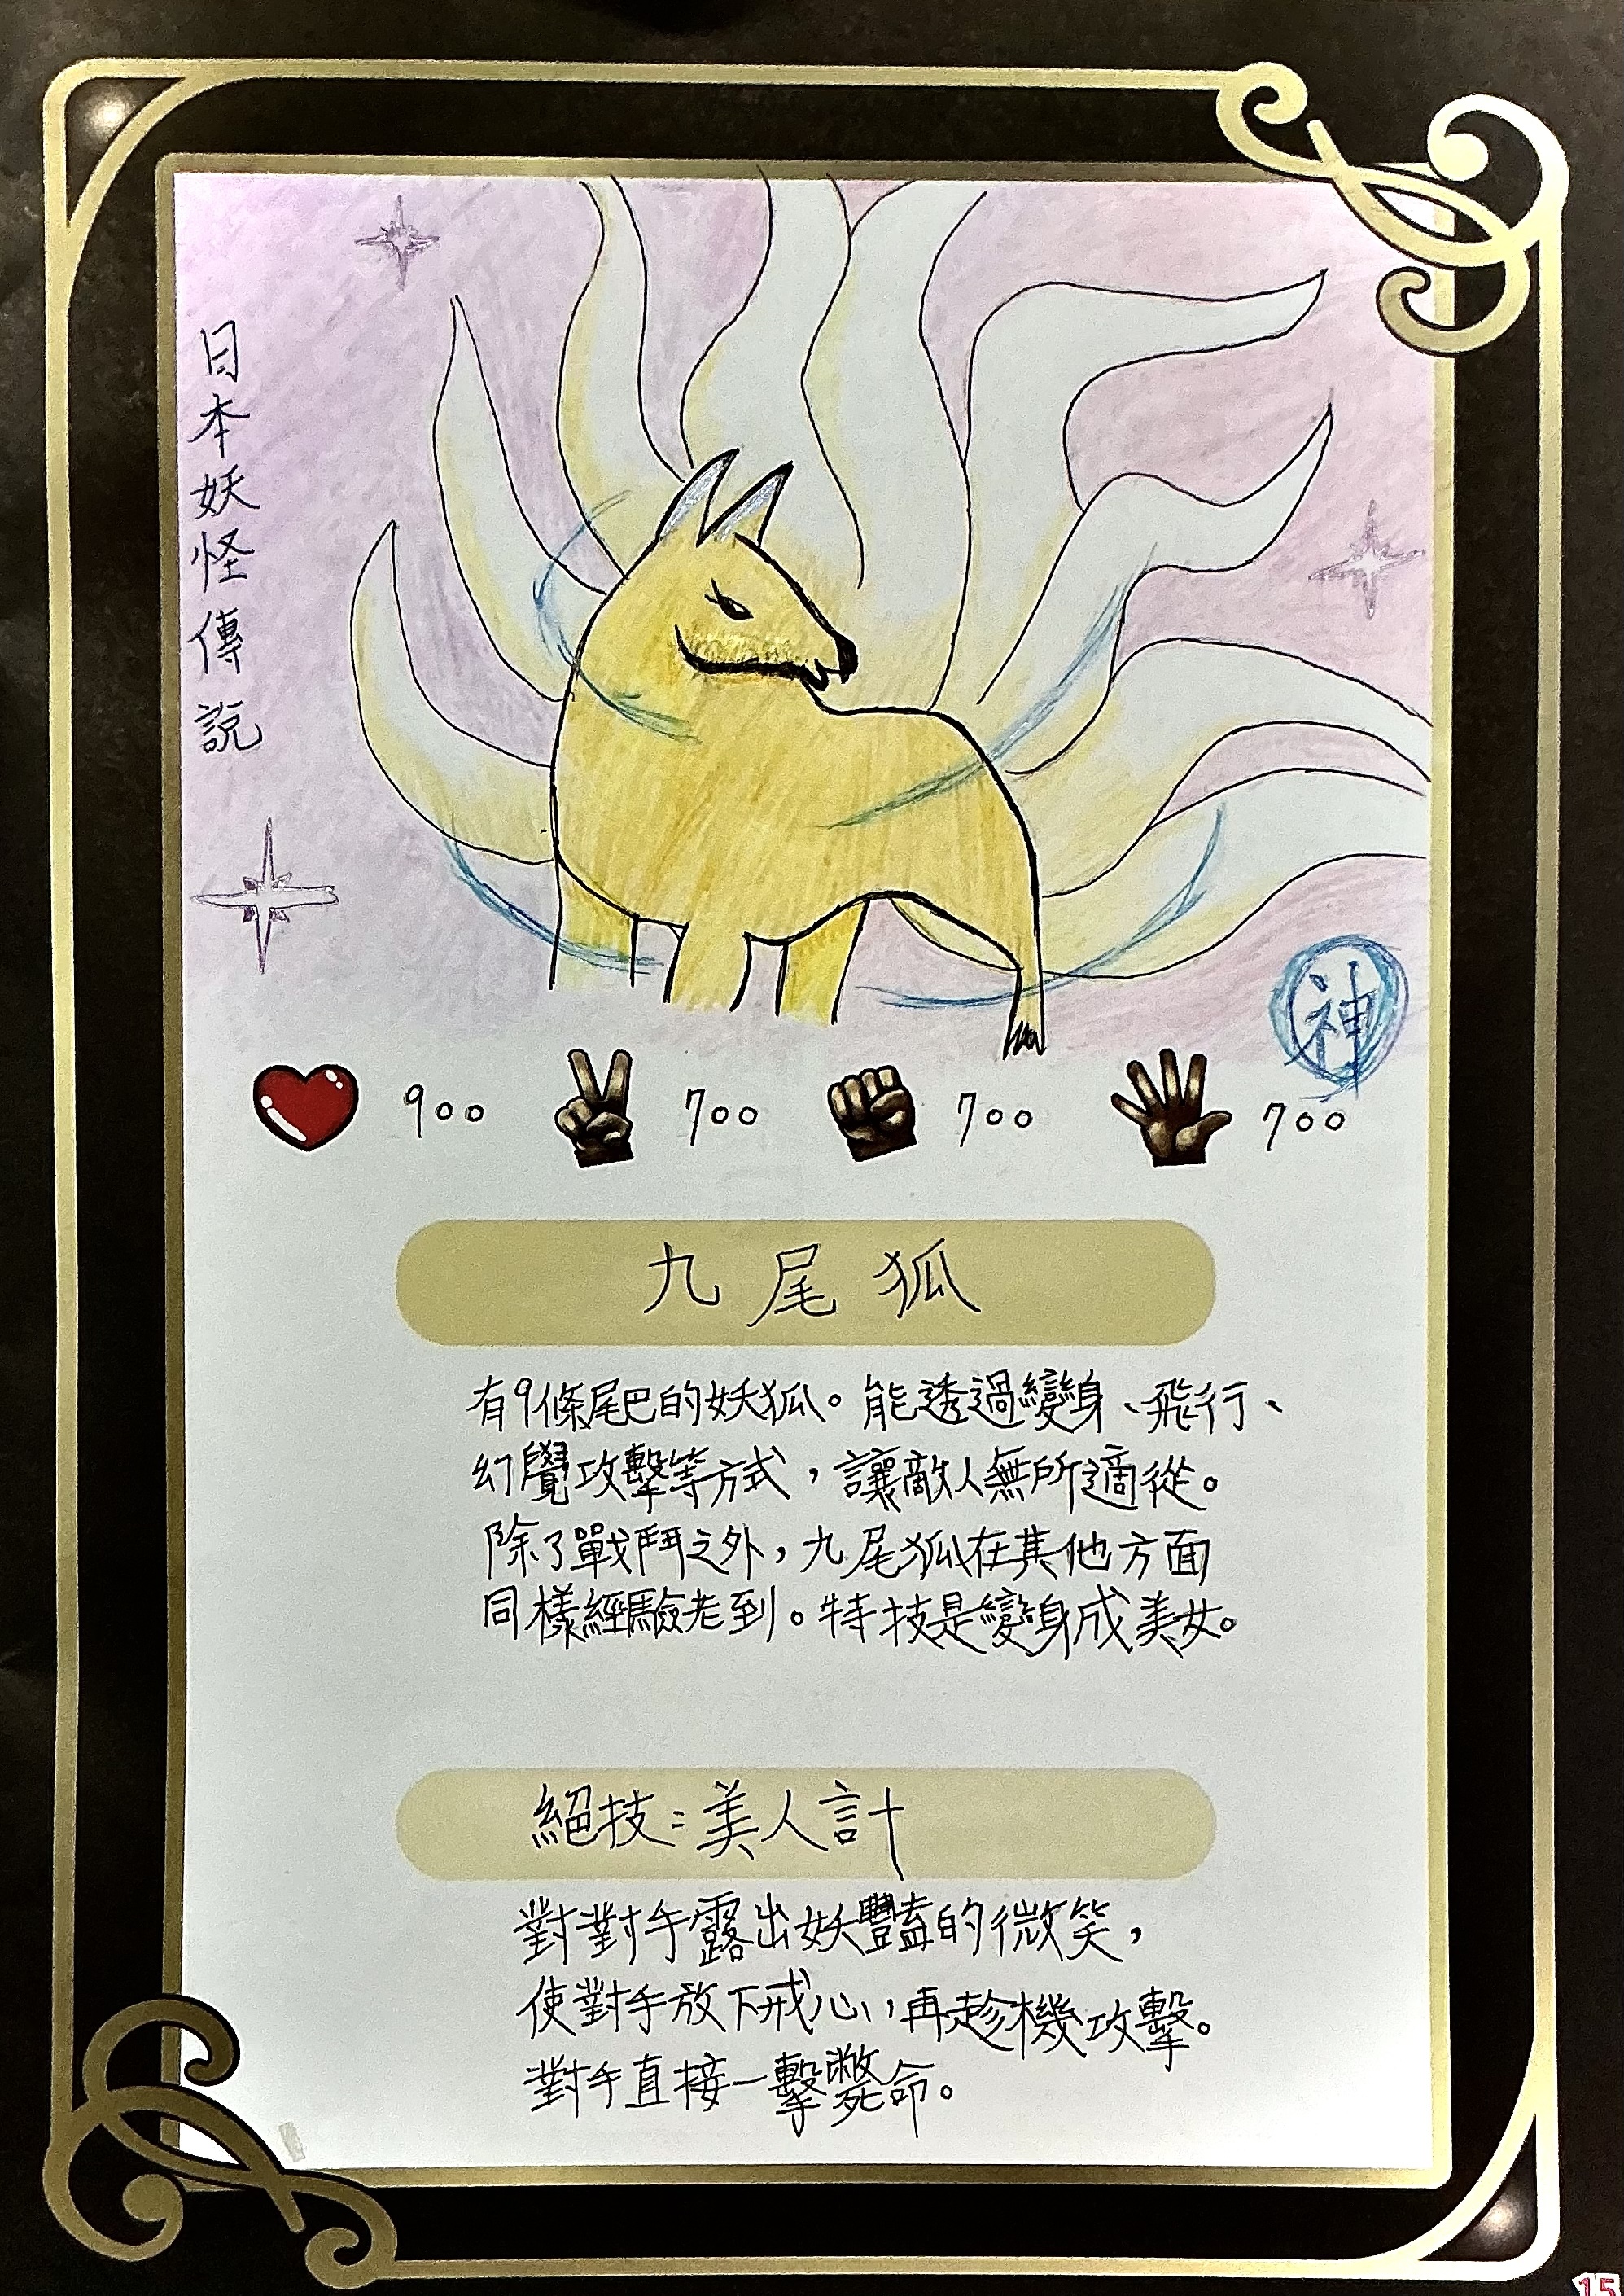 日本妖怪傳說
神
900 700 700 700
九尾狐
有9條尾巴的妖狐。能透過變身、飛行、
幻覺攻擊等方式，讓敵人無所適從。
除了戰鬥之外，九尾狐在其他方面
同樣經驗老到。特技是變身成美女。
絕技：美人計
對對手露出妖豔的微笑，
使對手放下戒心，再趁機攻擊。
對手直接一擊斃命。
15